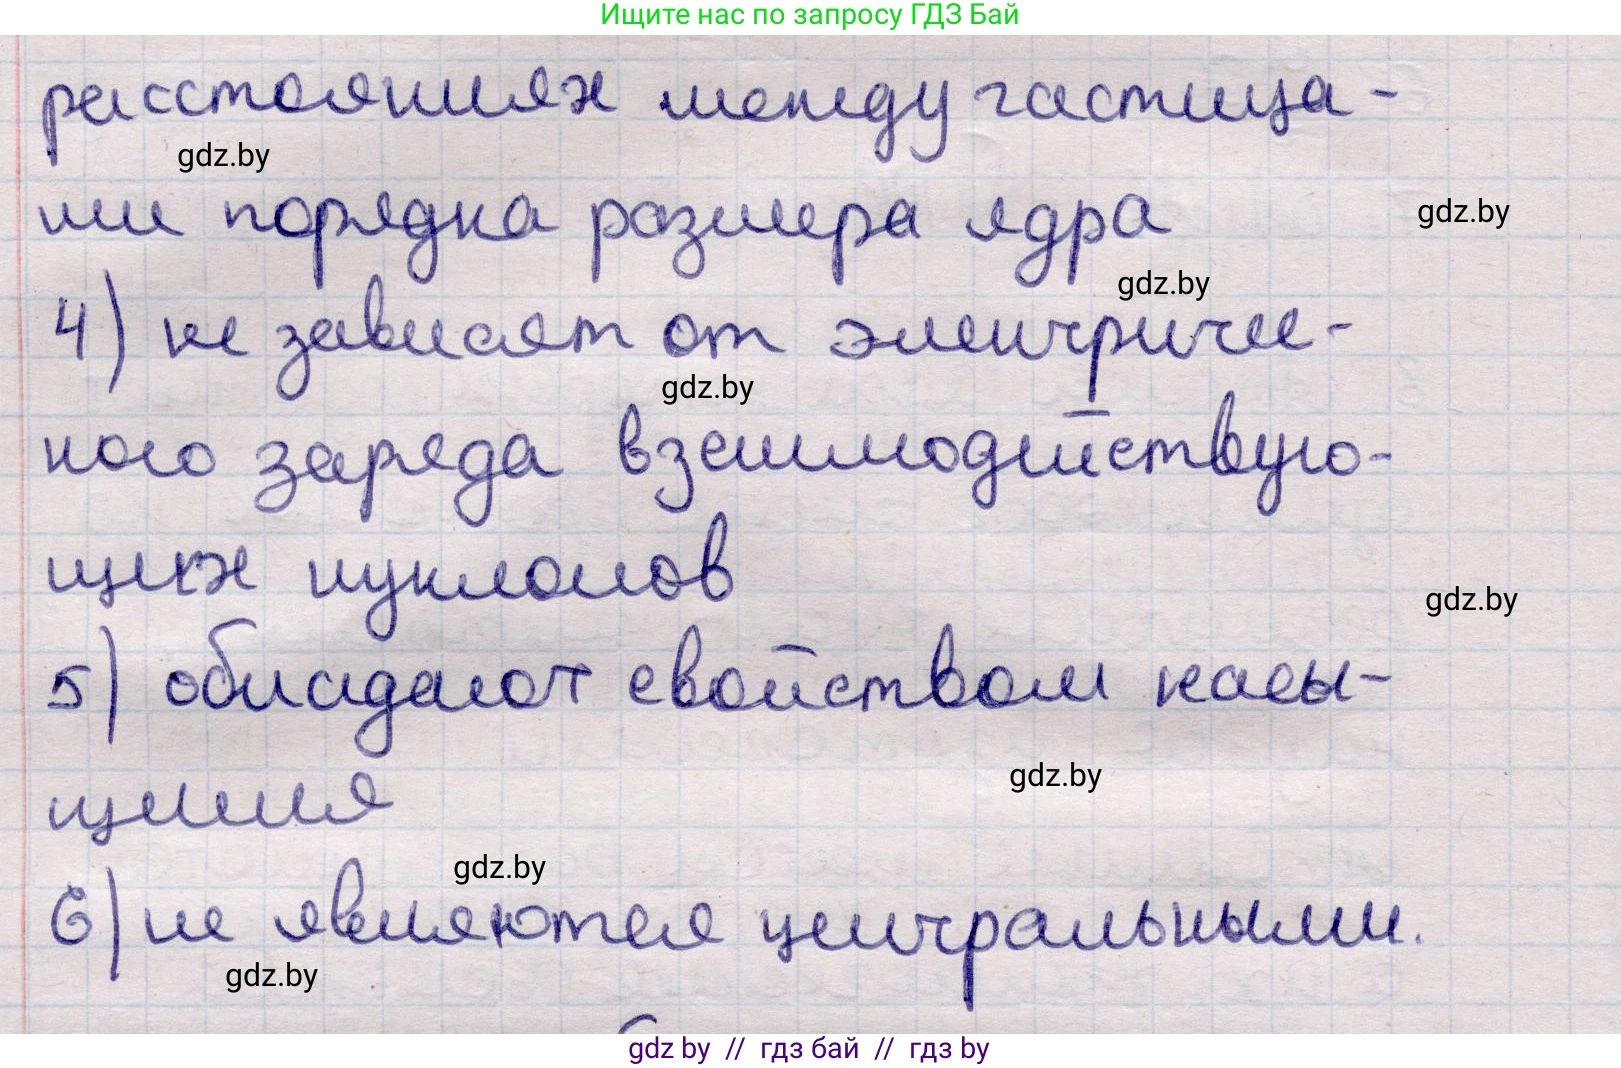 Ищите нас по запросу ГДЗ Бай
расстояниях между частица-
gdz.by
ми порядка размера ядра
gdz.by
gdz.by
4) не зависят от электричес-
gdz.by
кого заряда взаимодействую-
щих нуклонов
gdz.by
5) обладают свойством насы-
щения
gdz.by
gdz.by
6) не являются центральными.
gdz.by
gdz by // гдз бай // гдз by